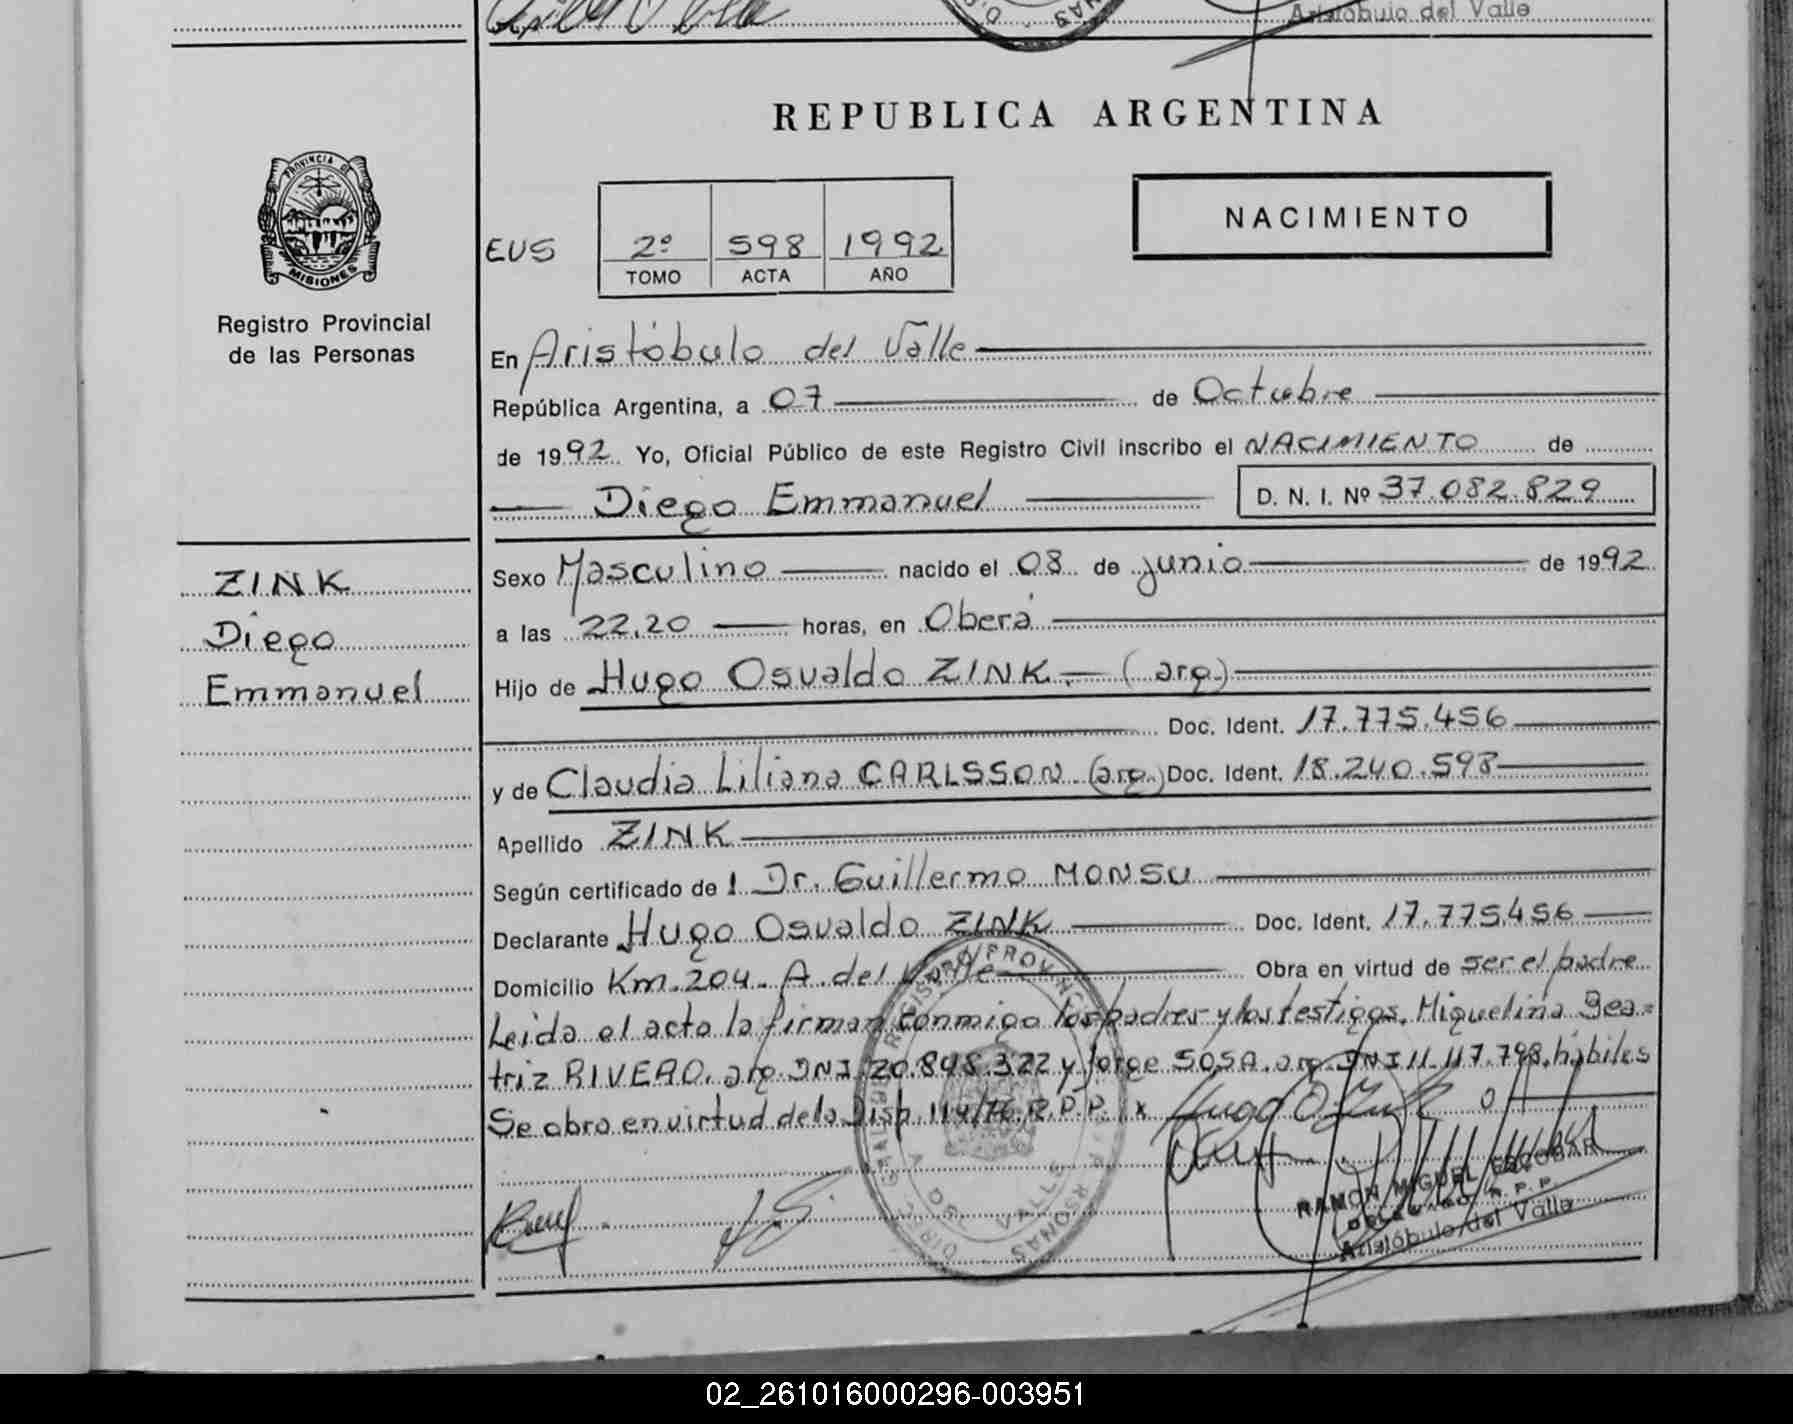 Aristóbulo del Valle
REPUBLICA ARGENTINA
PROVINCIA DE
MISIONES
Registro Provincial
de las Personas
NACIMIENTO
EUS 2º 598 1992
TOMO ACTA AÑO
En Aristóbulo del Valle
República Argentina, a 07 de Octubre
de 1992 Yo, Oficial Público de este Registro Civil inscribo el NACIMIENTO de
Diego Emmanuel D. N. I. Nº 37.082.829
ZINK
Diego
Emmanuel
Sexo Masculino nacido el 08 de junio de 1992
a las 22,20 horas, en Oberá
Hijo de Hugo Osvaldo ZINK.- (arg.)
Doc. Ident. 17.775.456
y de Claudia Liliana CARLSSON (arg.) Doc. Ident. 18.240.598
Apellido ZINK
Según certificado de Dr. Guillermo MONSU
Declarante Hugo Osvaldo ZINK Doc. Ident. 17.775.456
Domicilio Km. 204. A. del Valle Obra en virtud de ser el padre
Leida el acta la firman conmigo los padres y los testigos, Miguelina Bea=
triz RIVERO, arg. DNI 20.848.322 y Jorge SOSA, arg. DNI 11.117.798, hábiles
Se obra en virtud de la Disp. 114/76. R.P.P.
RAMON MIGUEL ESCOBAR
DELEGADO R. P. P.
Aristóbulo del Valle
02_261016000296-003951